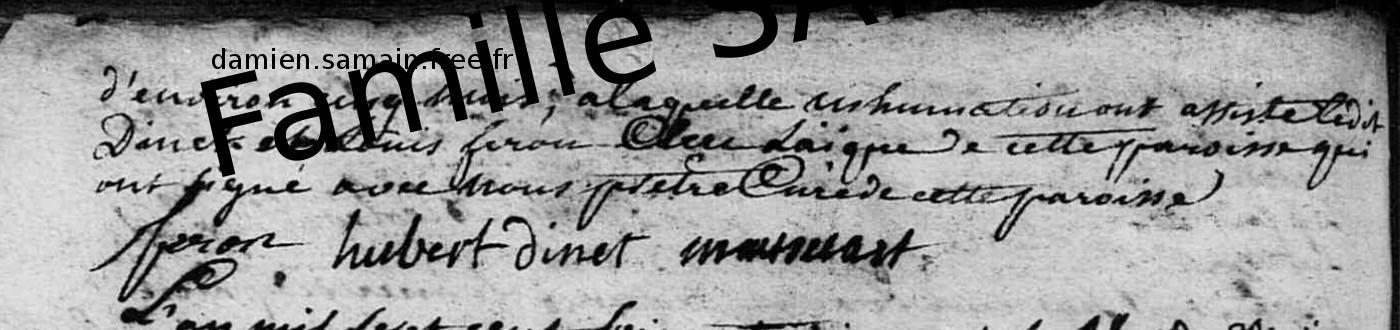 Famille SA
damien.samain.free.fr
d'environ cinq mois, a laquelle inhumation ont assiste ledit
Dinet et Louis feron Clerc Laique de cette paroisse qui
ont signé avec nous prêtre Curé de cette paroisse
feron hubert dinet
L'an mil sept cent